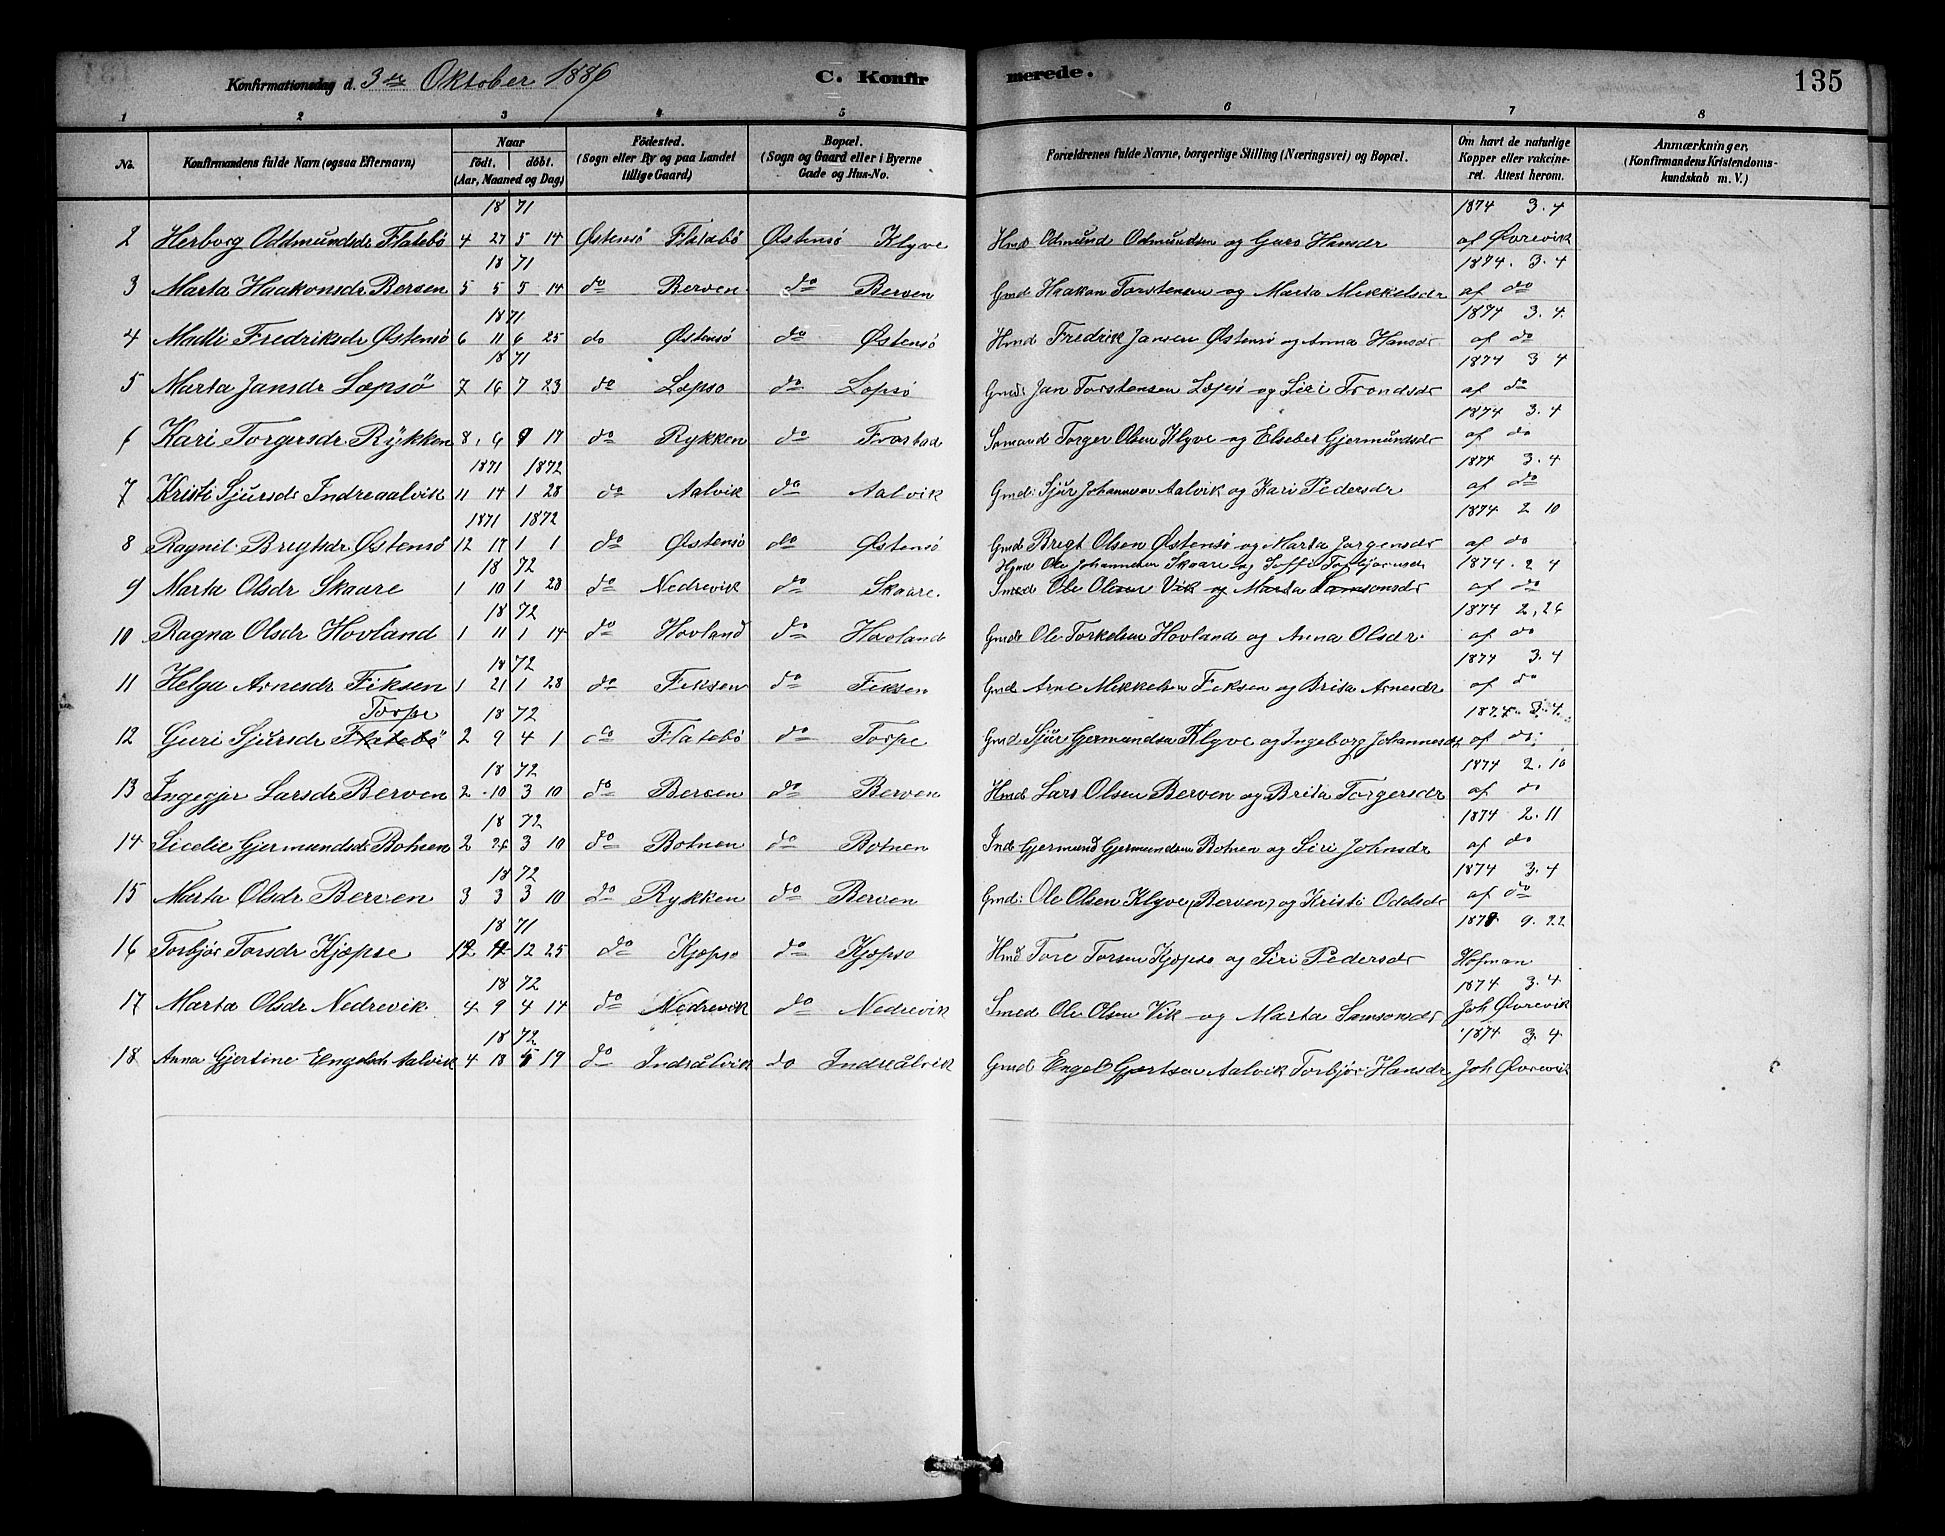 Konfirmationsdag d. 3die Oktober 1886 C. Konfirmerede. 135
1 2 3 4 5 6 7 8
No. Konfirmandens fulde Navn (ogsaa Efternavn) Naar födt. döbt. (Aar, Maaned og Dag) Födested. (Sogn eller By og paa Landet tillige Gaard) Bopæl. (Sogn og Gaard eller i Byerne Gade og Hus-No. Forældrenes fulde Navne, borgerlige Stilling (Næringsvei) og Bopæl. Om havt de naturlige Kopper eller vakcineret. Attest herom. Anmærkninger, (Konfirmandens Kristendomskundskab m. V.)
18 71 1874 3.4
2 Herborg Oddmundsdr Flatebö 4 27 5 14 Østensö Flatabö Østensö Klyve Hmd Odmund Odmundsen og Guro Hansdr af Øvrevik
18 71 1874. 3.4
3 Marta Haakonsdr Berven 5 5 5 14 do Berven do Berven Gmd Haakon Torstensen og Marta Mikkelsdr af do
18 71 1874 3.4.
4 Madli Fredriksdr Østensö 6 11 6 25 do Østensö do Østensö Hmd Fredrik Jansen Østensö og Anna Hansdr af do
18 71 1874 3 4
5 Marta Jansdr Læpsö 7 16 7 23 do Læpso do Lopsö Gmd: Jan Torstensen Læpsö og Siri Trondsdr af do
1874 3.4
6 Kari Torgersdr Rykken 8 6 9 17 do Rykken do Frostad Torger Olsen Klyve og Elsebet Gjermundsdr af do
1871 1872 1874 3.4
7 Kristi Sjursdr Indreaalvik 11 14 1 28 do Aalvik do Aalvik Gmd: Sjur Johannesen Aalvik og Kari Pedersdr af do
1871 1872 1874 2 10
8 Ragnil. Brigtsdr Østensö 12 17 1 1 do Østensö do Østensö Gmd Brigt Olsen Østensö og Marta Jorgensdr af do
18 72 Hmd Ole Johannesen Skaare og Torbjörnsdr 1874. 2 4
9 Marta Olsdr Skaare 1 10 1 28 do Nedrevik do Skaare. Smed Ole Olsen Vik og Marta Samsonsdr af do
18 72 1874 2,26
10 Ragna Olsdr Hovland 1 11 1 14 do Hovland do Hovland Gmd Ole Torkelsen Hovland og Anna Olsdr. af do
18 72 1874 3.4
11 Helga Arnesdr Fiksen 1 21 1 28 do Fiksen do Fiksen Gmd Arne Mikkelsen Fiksen og Brita Arnesdr af do
Torpe 18 72 1874. 3.4.
12 Guri Sjursdr Flatebö 2 9 4 1 do Flatebö do Torpe Gmd Sjur Gjermundsen Klyve og Ingeborg Johannesdr af do
18 72 1874 2.10
13 Ingegjer Larsdr Berven 2 10 3 10 do Berven do Berven Hmd Lars Olsen Berven og Brita Torgersdr af do
18 72 1874 2.11
14 Sicelie Gjermundsdr Botnen 2 26 3 10 do Botnen do Botnen Ind Gjermund Gjermundsen Botnen og Siri Johnsdr af do
18 72 1874 3.4
15 Marta Olsdr Berven 3 3 3 10 do Rykken do Berven Gmd: Ole Olsen Klyve (Berven) og Kristi Oddsdr af do
18 71 1878 9.22
16 Torbjör Torsdr Kjöpse 12 4 12 25 do Kjöpso do Kjöpso Hmd Tore Torsen Kjöpso og Siri Pedersdr Hofman
18 72 1874 3.4
17 Marta Olsdr Nedrevik. 4 9 4 14 do Nedrevik do Nedrevik Smed Ole Olsen Vik og Marta Samsonsdr Joh Øvrevik
18 72 1874 3.4
18 Anna Gjertine Engelsdr Aalvik 4 18 5 19 do Indreålvik do Indreålvik Gmd Engel Gjertsen Aalvik Torbjör Hansdr Joh Øvrevik